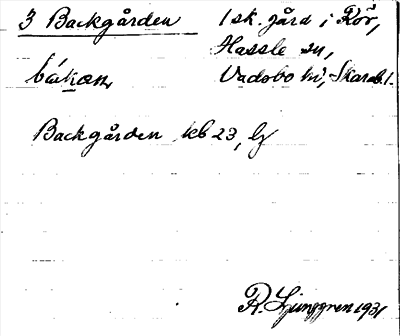 3 Backgården 1 sk. gård i Rör,
Hassle sn,
Vadsbo hd, Skarab. l.
Backgården kb 23, lf
R. Ljunggren 1931